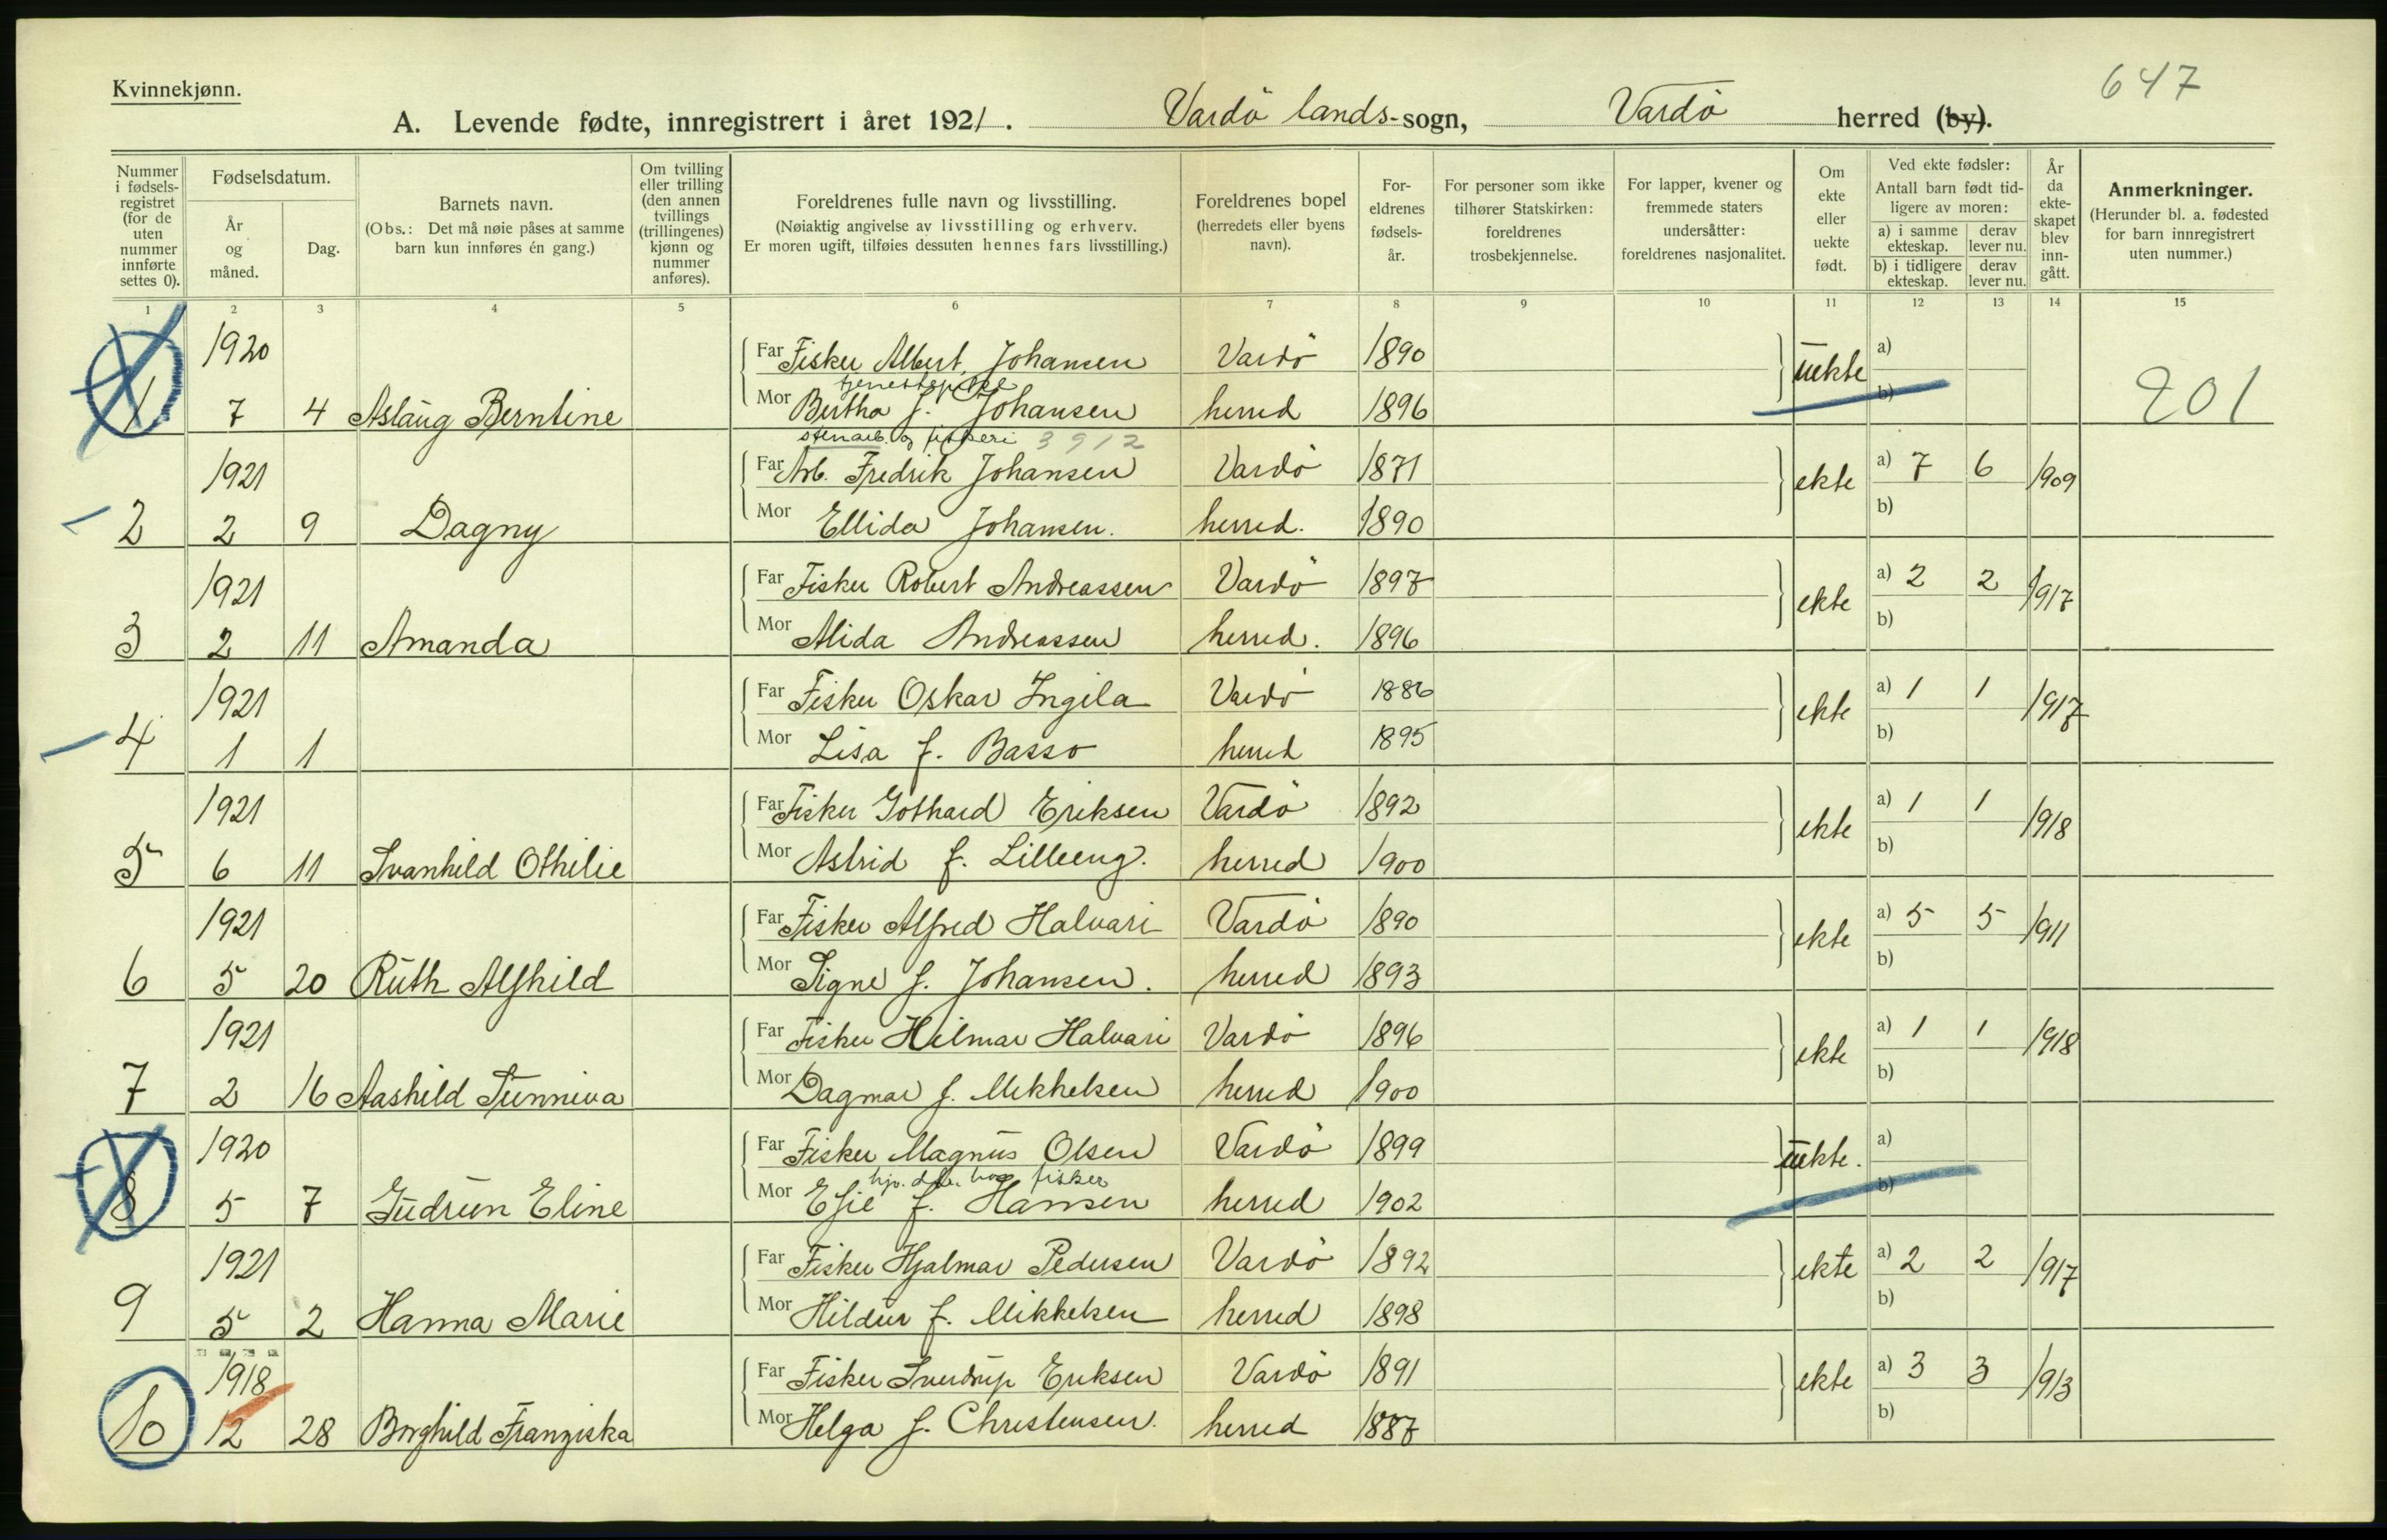 Kvinnekjønn.
647
A. Levende fødte, innregistrert i året 1921. Vardö lands-sogn, Vardö herred (by).
Nummer i fødsels-registret (for de uten nummer innførte settes 0).
Fødselsdatum.
År og måned.
Dag.
Barnets navn.
(Obs.: Det må nøie påses at samme barn kun innføres én gang.)
Om tvilling eller trilling (den annen tvillings (trillingenes) kjønn og nummer anføres).
Foreldrenes fulle navn og livsstilling.
(Nøiaktig angivelse av livsstilling og erhverv.
Er moren ugift, tilføies dessuten hennes fars livsstilling.)
Foreldrenes bopel (herredets eller byens navn).
For-eldrenes fødsels-år.
For personer som ikke tilhører Statskirken: foreldrenes trosbekjennelse.
For lapper, kvener og fremmede staters undersåtter: foreldrenes nasjonalitet.
Om ekte eller uekte født.
Ved ekte fødsler:
Antall barn født tid-ligere av moren:
a) i samme ekteskap. derav lever nu.
b) i tidligere ekteskap. derav lever nu.
År da ekte-skapet blev inn-gått.
Anmerkninger.
(Herunder bl. a. fødested for barn innregistrert uten nummer.)
1 2 3 4 5 6 7 8 9 10 11 12 13 14 15
1920 Far Fisker Albert Johansen Vardö 1890 uekte a)
tjenestepike
1 7 4 Aslaug Berntine Mor Bertha f. Johansen herred 1896 b) 201
stenarb. og fiskeri 3912
1921 Far Arb. Fredrik Johansen Vardö 1871 ekte a) 7 6 1909
2 2 9 Dagny Mor Ellida Johansen. herred. 1890 b)
1921 Far Fisker Robert Andreassen Vardö 1897 ekte a) 2 2 1917
3 2 11 Amanda Mor Alida Andreassen herred. 1896 b)
1921 Far Fisker Oskar Ingila Vardö 1886 ekte a) 1 1 1917
4 1 1 Mor Lisa f. Basso herred 1895 b)
1921 Far Fisker Gothard Eriksen Vardö 1892 ekte a) 1 1 1918
5 6 11 Svanhild Othilie Mor Astrid f. Lilleeng. herred 1900 b)
1921 Far Fisker Alfred Halvari Vardö 1890 ekte a) 5 5 1911
6 5 20 Ruth Alfhild Mor Signe f. Johansen. herred 1893 b)
1921 Far Fisker Hilmar Halvari Vardö 1896 ekte a) 1 1 1918
7 2 16 Aashild Sunniva Mor Dagmar f. Mikkelsen herred 1900 b)
1920 Far Fisker Magnus Olsen Vardö 1899 uekte. a)
fisker
8 5 7 Gudrun Eline Mor f. Hansen herred 1902 b)
1921 Far Fisker Hjalmar Pedersen Vardö 1892 ekte a) 2 2 1917
9 5 2 Hanna Marie Mor Hildur f. Mikkelsen herred 1898 b)
1918 Far Fisker Sverdrup Eriksen Vardö 1891 ekte a) 3 3 1913
10 12 28 Borghild Franziska Mor Helga f. Christensen. herred 1887 b)